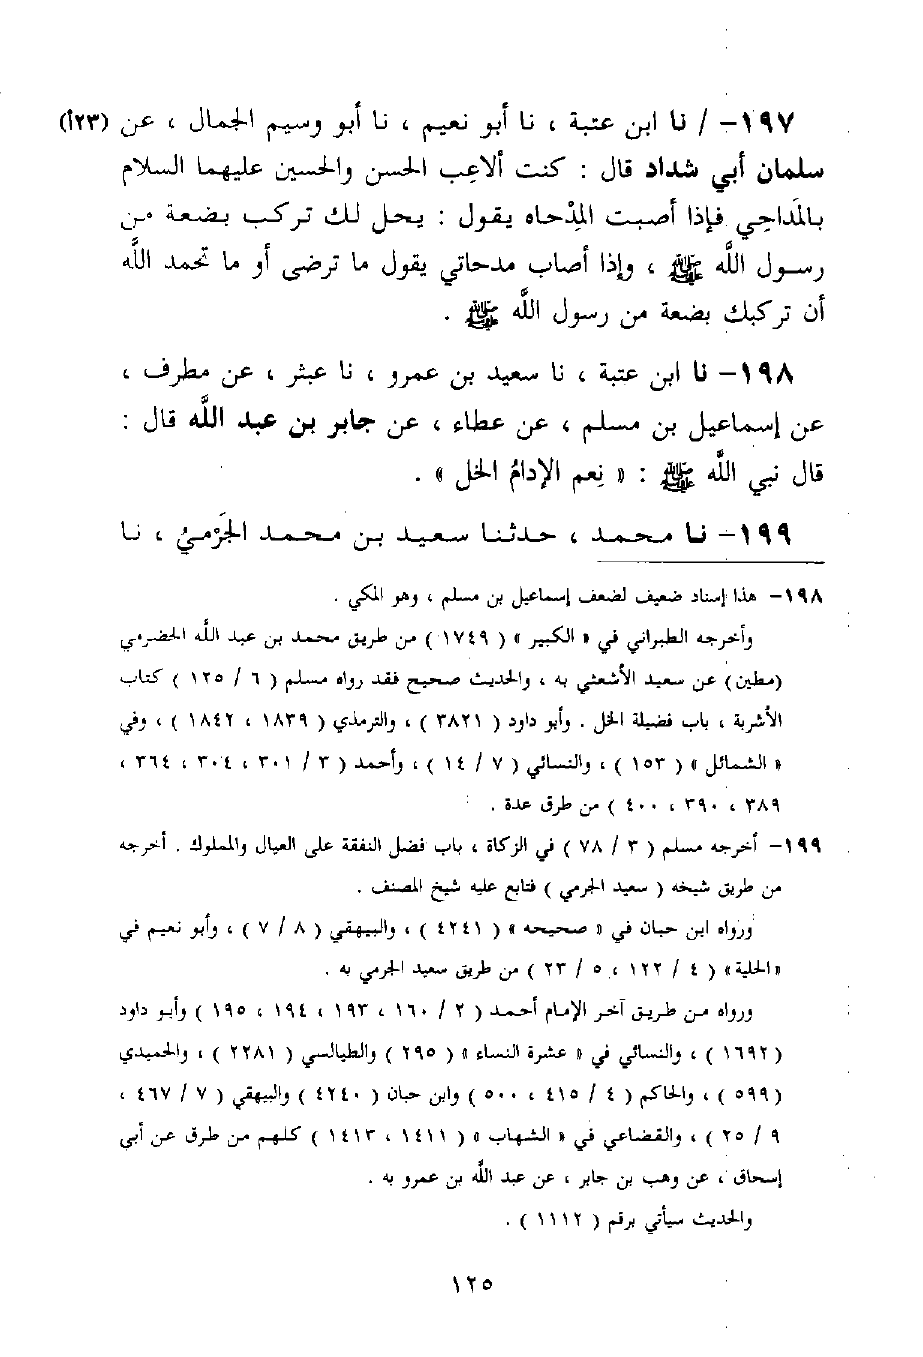 ١٩٧- / نا ابن عتبة ، نا أبو نعيم ، نا أبو وسيم الجمال ، عن (٢٣أ)
سلمان أبي شداد قال : كنت ألاعِب الحسن والحسين عليهما السلام
بالمَداحِي فإذا أصبت المِدْحاه يقول : يحل لك تركب بضعة من
رسول اللَّه ﷺ ، وإذا أصاب مدحاتي يقول ما ترضى أو ما تحمد اللَّه
أن تركبك بضعة من رسول اللَّه ﷺ .
١٩٨- نا ابن عتبة ، نا سعيد بن عمرو ، نا عبثر ، عن مطرف ،
عن إسماعيل بن مسلم ، عن عطاء ، عن جابر بن عبد اللَّه قال :
قال نبي اللَّه ﷺ : « نِعم الإدامُ الخل » .
١٩٩- نا محمد ، حدثنا سعيد بن محمد الجَرْميُ ، نا
١٩٨- هذا إسناد ضعيف لضعف إسماعيل بن مسلم ، وهو المكي .
وأخرجه الطبراني في « الكبير » ( ١٧٤٩ ) من طريق محمد بن عبد اللَّه الحضرمي
(مطين) عن سعيد الأشعثي به ، والحديث صحيح فقد رواه مسلم ( ٦ / ١٢٥ ) كتاب
الأشربة ، باب فضيلة الخل . وأبو داود ( ٣٨٢١ ) ، والترمذي ( ١٨٣٩ ، ١٨٤٢ ) ، وفي
« الشمائل » ( ١٥٣ ) ، والنسائي ( ٧ / ١٤ ) ، وأحمد ( ٣ / ٣٠١ ، ٣٠٤ ، ٣٦٤ ،
٣٨٩ ، ٣٩٠ ، ٤٠٠ ) من طرق عدة .
١٩٩- أخرجه مسلم ( ٣ / ٧٨ ) في الزكاة ، باب فضل النفقة على العيال والمملوك . أخرجه
من طريق شيخه ( سعيد الجرمي ) فتابع عليه شيخ المصنف .
ورواه ابن حبان في « صحيحه » ( ٤٢٤١ ) ، والبيهقي ( ٨ / ٧ ) ، وأبو نعيم في
«الحلية» ( ٤ / ١٢٢ ، ٥ / ٢٣ ) من طريق سعيد الجرمي به .
ورواه من طريق آخر الإمام أحمد ( ٢ / ١٦٠ ، ١٩٣ ، ١٩٤ ، ١٩٥ ) وأبو داود
( ١٦٩٢ ) ، والنسائي في « عشرة النساء » ( ٢٩٥ ) والطيالسي ( ٢٢٨١ ) ، والحميدي
( ٥٩٩ ) ، والحاكم ( ٤ / ٤١٥ ، ٥٠٠ ) وابن حبان ( ٤٢٤٠ ) والبيهقي ( ٧ / ٤٦٧ ،
٩ / ٢٥ ) ، والقضاعي في « الشهاب » ( ١٤١١ ، ١٤١٣ ) كلهم من طرق عن أبي
إسحاق ، عن وهب بن جابر ، عن عبد اللَّه بن عمرو به .
والحديث سيأتي برقم ( ١١١٢ ) .
١٢٥